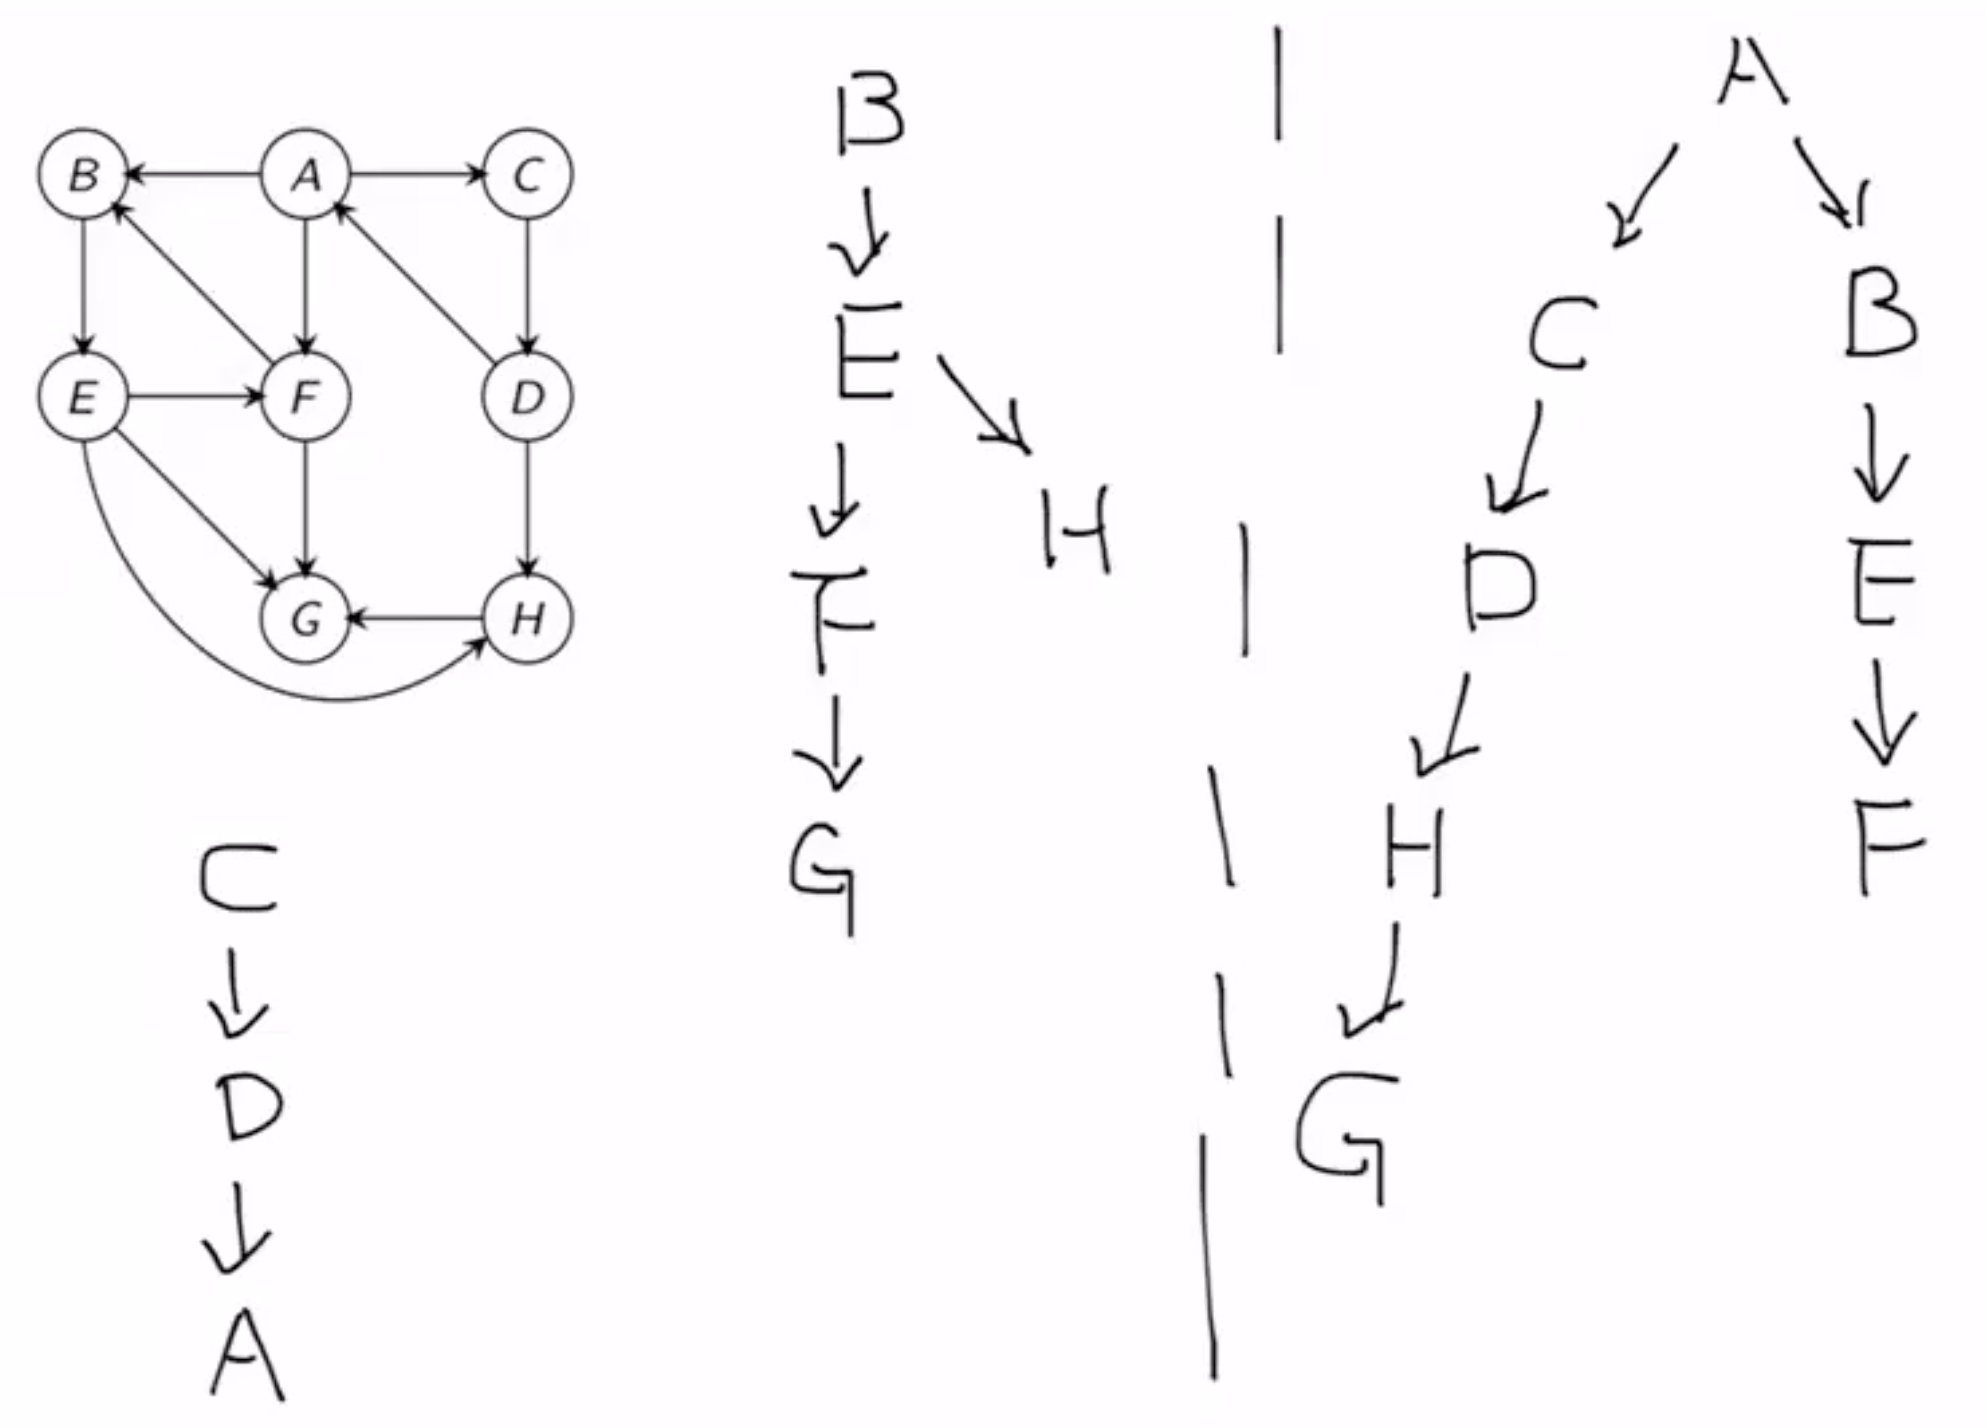 B A C
E F D
G H
C
D
A
B
E
H
F
G
A
C B
D E
H F
G